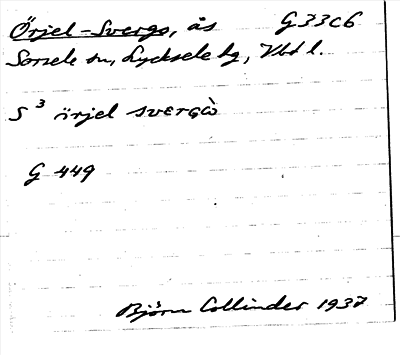 Örjel-Svergo, ås G33c6
Sorsele sn, Lycksele lg, Vbd l.
S³ örjel svergò
G 449
Björn Collinder 1937